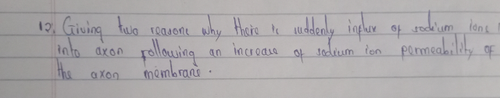 12. Giving two reasons why there is suddenly influx of sodium ions
into axon following an increase of sodium ion permeability of
the axon membrane.